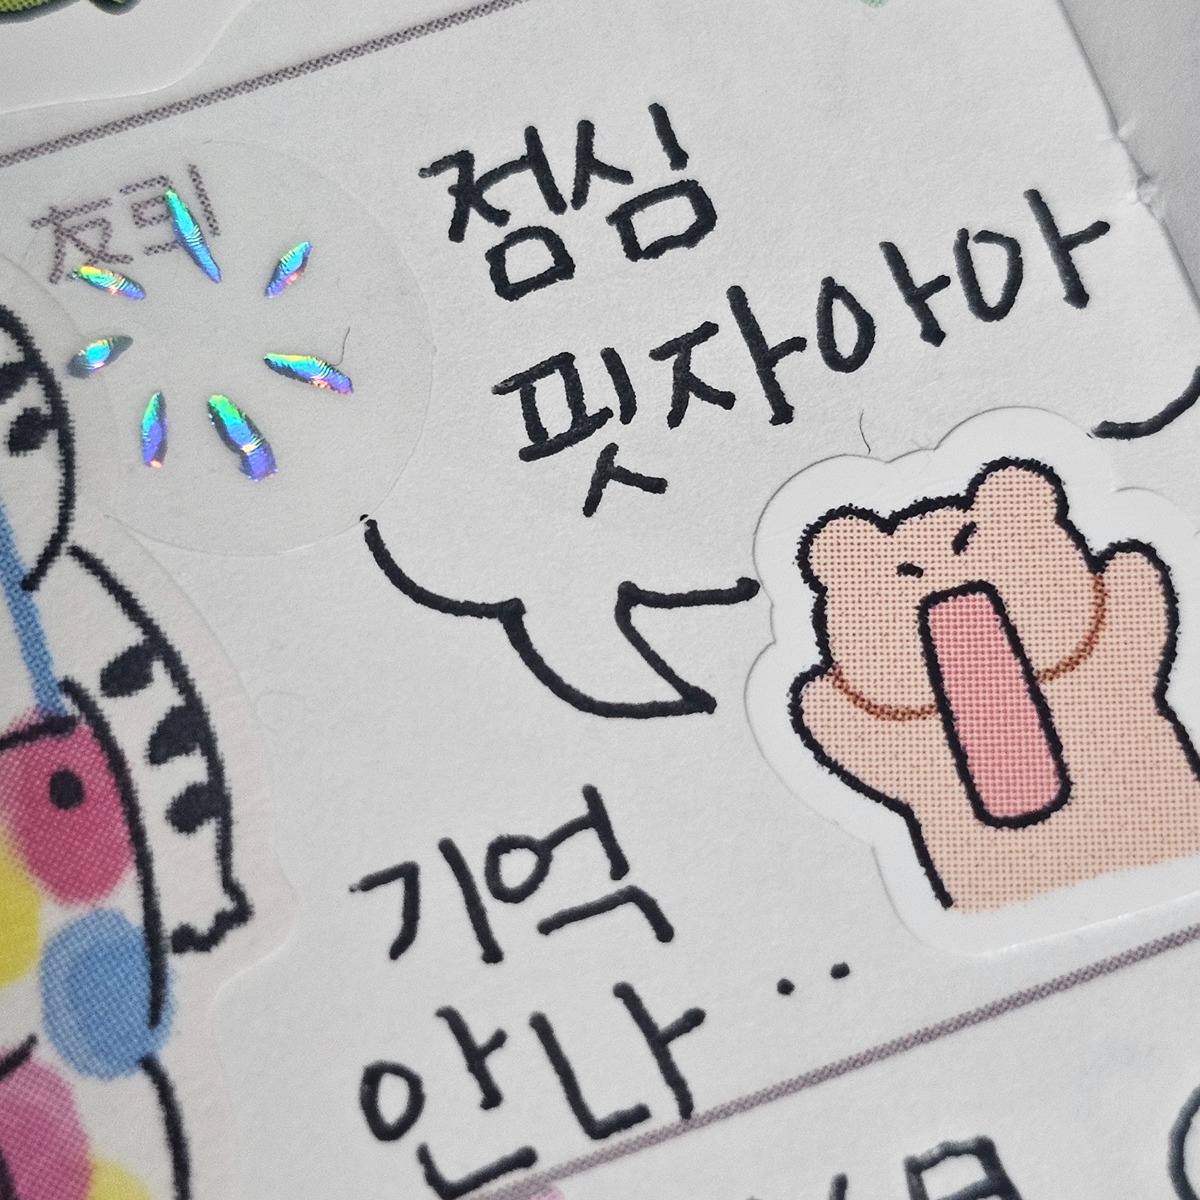 점심
핏자아아
기억
안나..